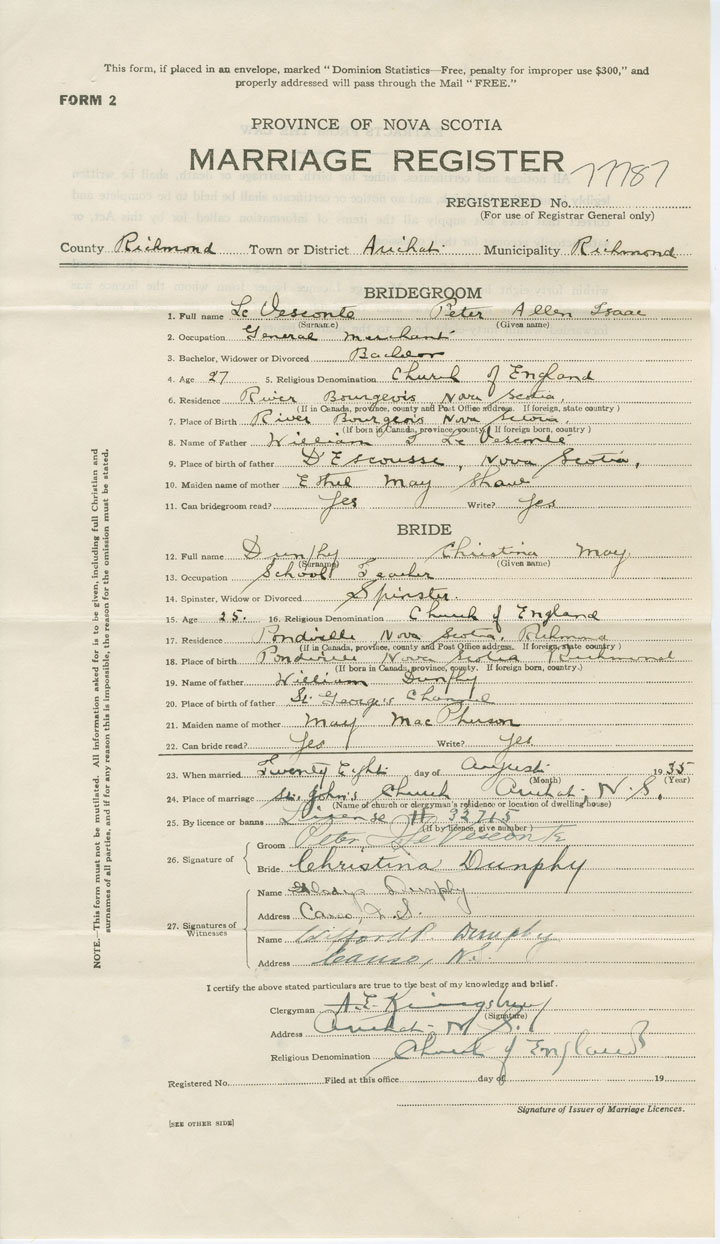 This form, if placed in an envelope, marked "Dominion Statistics—Free, penalty for improper use $300," and
properly addressed will pass through the Mail "FREE."
FORM 2
PROVINCE OF NOVA SCOTIA
MARRIAGE REGISTER
77787
REGISTERED No.
(For use of Registrar General only)
County Richmond Town or District Arichat Municipality Richmond
BRIDEGROOM
1. Full name Le Vesconte Peter Allen Isaac
(Surname) (Given name)
2. Occupation General Merchant
3. Bachelor, Widower or Divorced Bachelor
4. Age 27 5. Religious Denomination Church of England
6. Residence River Bourgeois Nova Scotia,
(If in Canada, province, county and Post Office address. If foreign, state country)
7. Place of Birth River Bourgeois Nova Scotia,
(If born in Canada, province, county. If foreign born, country.)
8. Name of Father William Le Vesconte
9. Place of birth of father D'Escousse, Nova Scotia,
10. Maiden name of mother Ethel May Shaw
11. Can bridegroom read? Yes Write? Yes
BRIDE
12. Full name Dunphy Christina May
(Surname) (Given name)
13. Occupation School Teacher
14. Spinster, Widow or Divorced Spinster.
15. Age 25. 16. Religious Denomination Church of England
17. Residence Pondville Nova Scotia, Richmond
(If in Canada, province, county and Post Office address. If foreign, state country)
18. Place of birth Pondville Nova Scotia Richmond
(If born in Canada, province, county. If foreign born, country.)
19. Name of father William Dunphy
20. Place of birth of father St. George's Channel
21. Maiden name of mother May MacPherson
22. Can bride read? Yes Write? Yes
23. When married Twenty Eight day of August 1935
(Month) (Year)
24. Place of marriage St. John's Church Arichat, N.S.
(Name of church or clergyman's residence or location of dwelling house)
25. By licence or banns License # 32715
(If by licence, give number)
26. Signature of
Groom Peter Le Vesconte
Bride Christina Dunphy
27. Signatures of Witnesses
Name Gladys Dunphy
Address Canso, N.S.
Name Dunphy
Address Canso, N.S.
I certify the above stated particulars are true to the best of my knowledge and belief.
Clergyman A. E. Kingsbury
(Signature)
Address Arichat N.S.
Religious Denomination Church of England
Registered No. Filed at this office day of 19
Signature of Issuer of Marriage Licences.
[SEE OTHER SIDE]
NOTE.—This form must not be mutilated. All information asked for is to be given, including full Christian and
surnames of all parties, and if for any reason this is impossible, the reason for the omission must be stated.